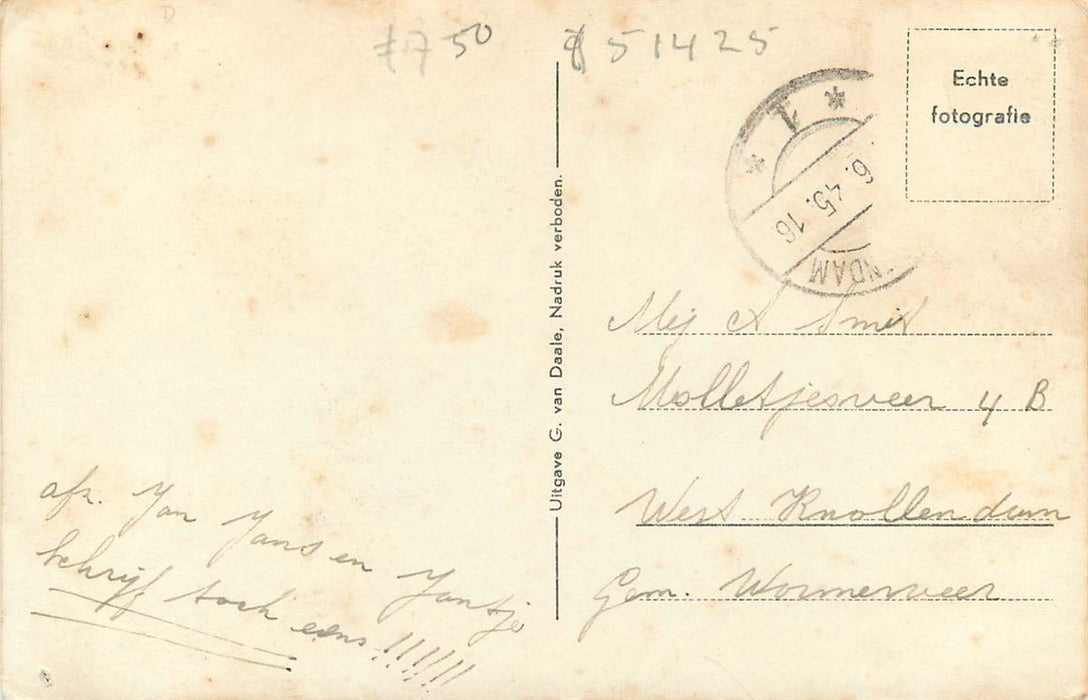 f 7 50
51425
Echte
fotografie
1
6.45.16
NDAM
Uitgave G. van Daale, Nadruk verboden.
Mej A Smit
Molletjesveer 4 B
West Knollendam
Gem. Wormerveer
afz. Jan Jansen Jantje
schrijf toch eens!!!!!!!